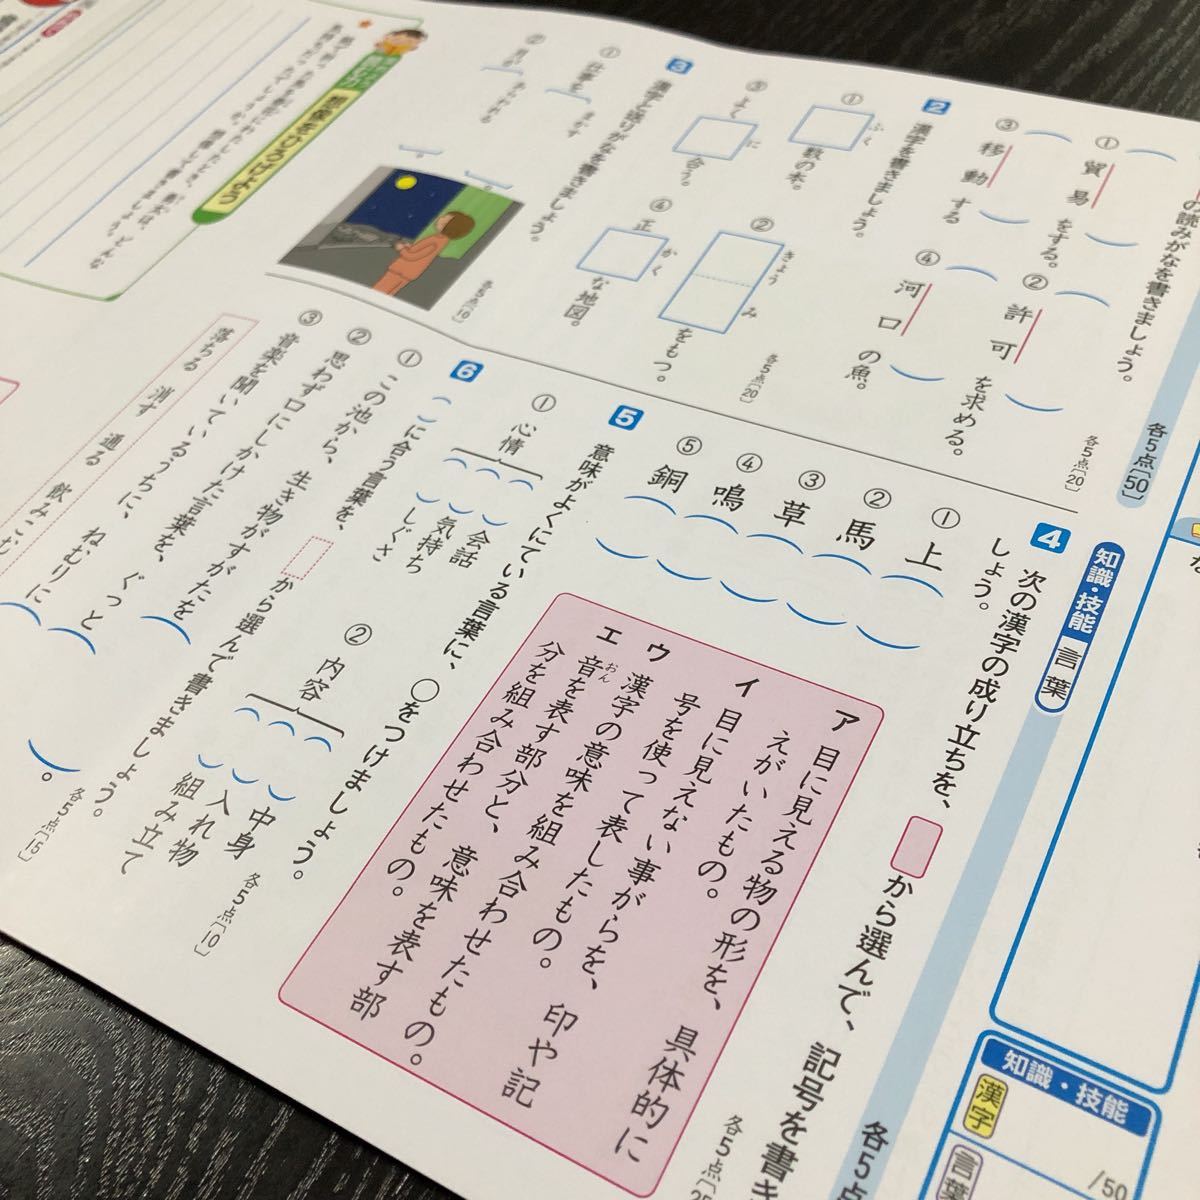 の読みがなを書きましょう。
各5点〔50〕
① 貿易をする。
② 許可を求める。
③ 移動する
④ 河口の魚。
各5点〔20〕
2 漢字を書きましょう。
① ふく 数の本。
② きょうみ をもつ。
③ よく に 合う。
④ 正 かく な地図。
各5点〔20〕
3 漢字と送りがなを書きましょう。
① 仕事を まかす 。
各5点〔10〕
想像をひろげよう
知識・技能 言葉
4 次の漢字の成り立ちを、 から選んで、記号を書き
しょう。
各5点〔25
① 上
② 馬
③ 草
④ 鳴
⑤ 銅
ア 目に見える物の形を、具体的に
えがいたもの。
イ 目に見えない事がらを、印や記
号を使って表したもの。
ウ 漢字の意味を組み合わせたもの。
エ 音を表す部分と、意味を表す部
おん
分を組み合わせたもの。
5 意味がよくにている言葉に、○をつけましょう。
各5点〔10〕
① 心情
会話
気持ち
しぐさ
② 内容
中身
入れ物
組み立て
6 ( )に合う言葉を、 から選んで書きましょう。
各5点〔15〕
① この池から、生き物がすがたを
② 思わず口にしかけた言葉を、ぐっと
③ 音楽を聞いているうちに、ねむりに 。
落ちる 消す 通る 飲みこむ
各5
知識・技能
漢字
/50
言葉